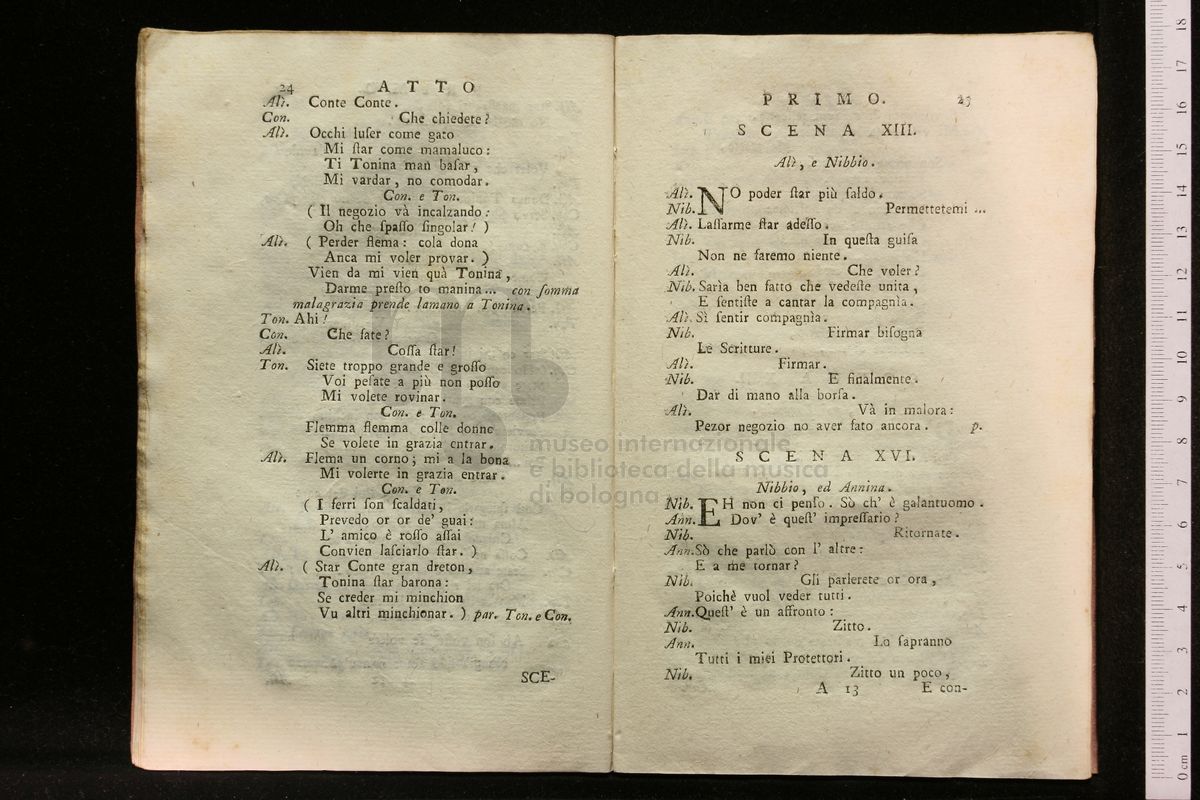 24 A T T O
Alì. Conte Conte.
Con. Che chiedete?
Alì. Occhi luſer come gato
Mi ſtar come mamaluco:
Ti Tonina man baſar,
Mi vardar, no comodar.
Con. e Ton.
( Il negozio và incalzando:
Oh che ſpaſſo ſingolar! )
Alì. ( Perder flema: cola dona
Anca mi voler provar. )
Vien da mi vien quà Tonina,
Darme preſto to manina... con ſomma
malagrazia prende lamano a Tonina.
Ton. Ahi!
Con. Che fate?
Alì. Coſſa ſtar!
Ton. Siete troppo grande e groſſo
Voi peſate a più non poſſo
Mi volete rovinar.
Con. e Ton.
Flemma flemma colle donne
Se volete in grazia entrar.
Alì. Flema un corno; mi a la bona
Mi volerte in grazia entrar.
Con. e Ton.
( I ferri ſon ſcaldati,
Prevedo or or de' guai:
L' amico è roſſo aſſai
Convien laſciarlo ſtar. )
Alì. ( Star Conte gran dreton,
Tonina ſtar barona:
Se creder mi minchion
Vu altri minchionar. ) par. Ton. e Con.
SCE-
P R I M O. 25
S C E N A XIII.
Alì, e Nibbio.
Alì. NO poder ſtar più ſaldo.
Nib. Permettetemi ...
Alì. Laſſarme ſtar adeſſo.
Nib. In queſta guiſa
Non ne faremo niente.
Alì. Che voler?
Nib. Sarìa ben fatto che vedeſte unita,
E ſentiſte a cantar la compagnìa.
Alì. Sì ſentir compagnìa.
Nib. Firmar biſogna
Le Scritture.
Alì. Firmar.
Nib. E finalmente.
Dar di mano alla borſa.
Alì. Và in malora:
Pezor negozio no aver fato ancora. p.
S C E N A XVI.
Nibbio, ed Annina.
Nib. EH non ci penſo. Sò ch' è galantuomo.
Ann. Dov' è queſt' impreſſario?
Nib. Ritornate.
Ann. Sò che parlò con l' altre:
E a me tornar?
Nib. Gli parlerete or ora,
Poichè vuol veder tutti.
Ann. Queſt' è un affronto:
Nib. Zitto.
Ann. Lo ſapranno
Tutti i miei Protettori.
Nib. Zitto un poco,
A 13 E con-
museo internazionale
e biblioteca della musica
di bologna
0 cm 1 2 3 4 5 6 7 8 9 10 11 12 13 14 15 16 17 18